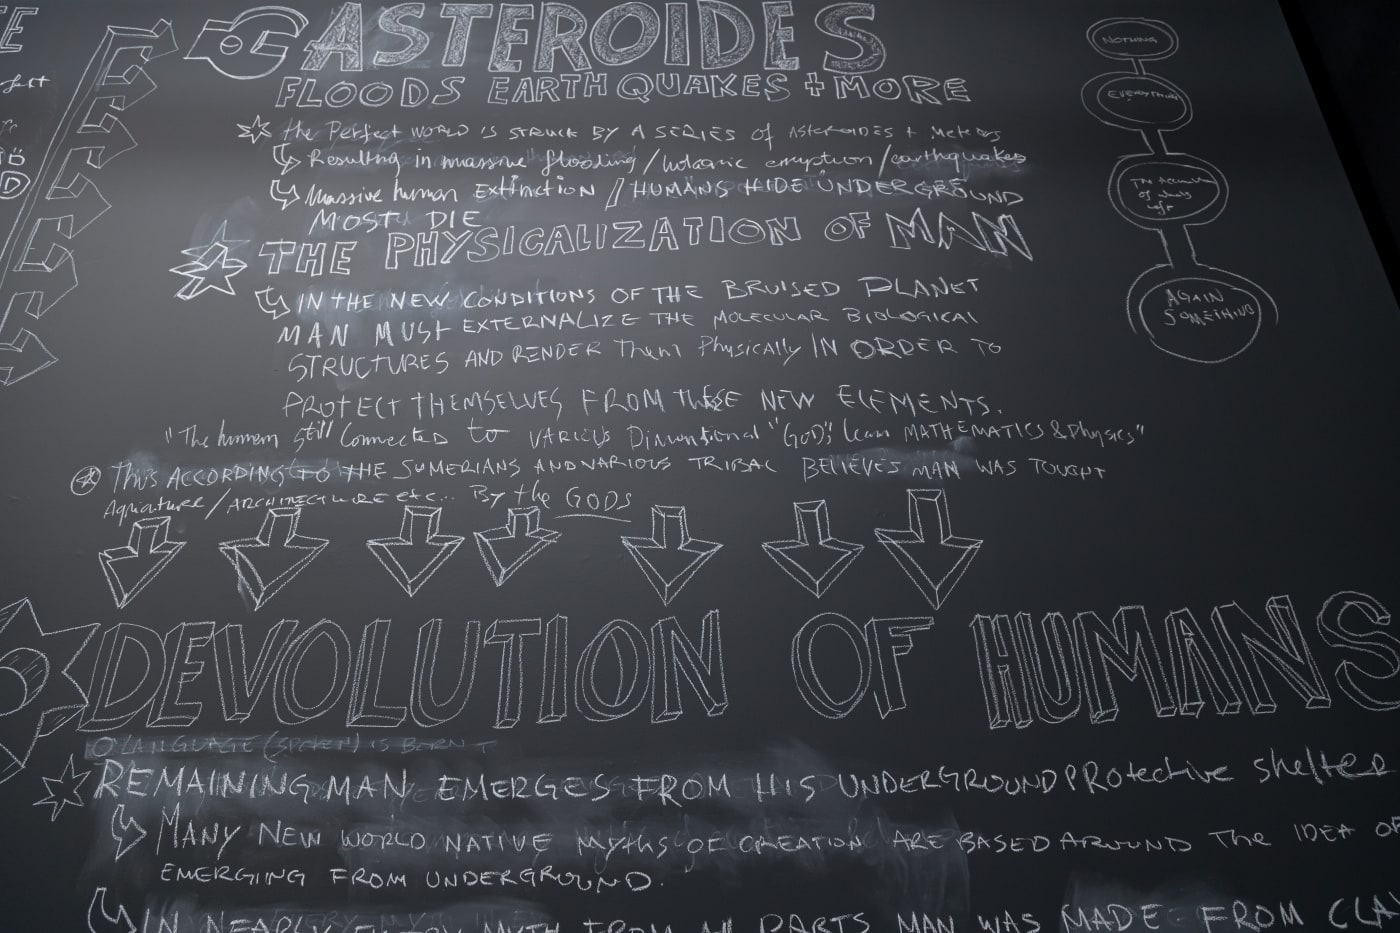 ASTEROIDES
FLOODS EARTH QUAKES + MORE
the Perfect WORLD IS STRUCK BY A SERIES of ASTEROIDES + Meteors
Resulting in massive flooding / volcanic eruption / earthquakes
Massive human EXTINCTION / HUMANS HIDE UNDERGROUND
MOST DIE
THE PHYSICALIZATION OF MAN
IN THE NEW CONDITIONS OF THE BRUISED PLANET
MAN MUST EXTERNALIZE THE MOLECULAR BIOLOGICAL
STRUCTURES AND RENDER Them Physically IN ORDER TO
PROTECT THEMSELVES FROM THESE NEW ELEMENTS.
"The human still Connected to VARIOUS Dimentional "GOD", learn MATHEMATICS & Physics"
Thus ACCORDING TO THE SUMERIANS AND VARIOUS TRIBAL BELIEVES MAN WAS TOUGHT
Agriculture / ARCHITECTURE etc... By the GODS
NOTHING
EVERYTHING
of whats
left
AGAIN
SOMETHING
DEVOLUTION OF HUMANS
LANGUAGE (SPOKEN) IS BORN
REMAINING MAN EMERGES FROM HIS UNDERGROUND PROtective shelter
MANY NEW WORLD NATIVE MYTHS OF CREATION ARE BASED AROUND THE IDEA OF
EMERGING FROM UNDERGROUND.
IN NEARLY EVERY MYTH FROM All PARTS MAN WAS MADE FROM CLAY